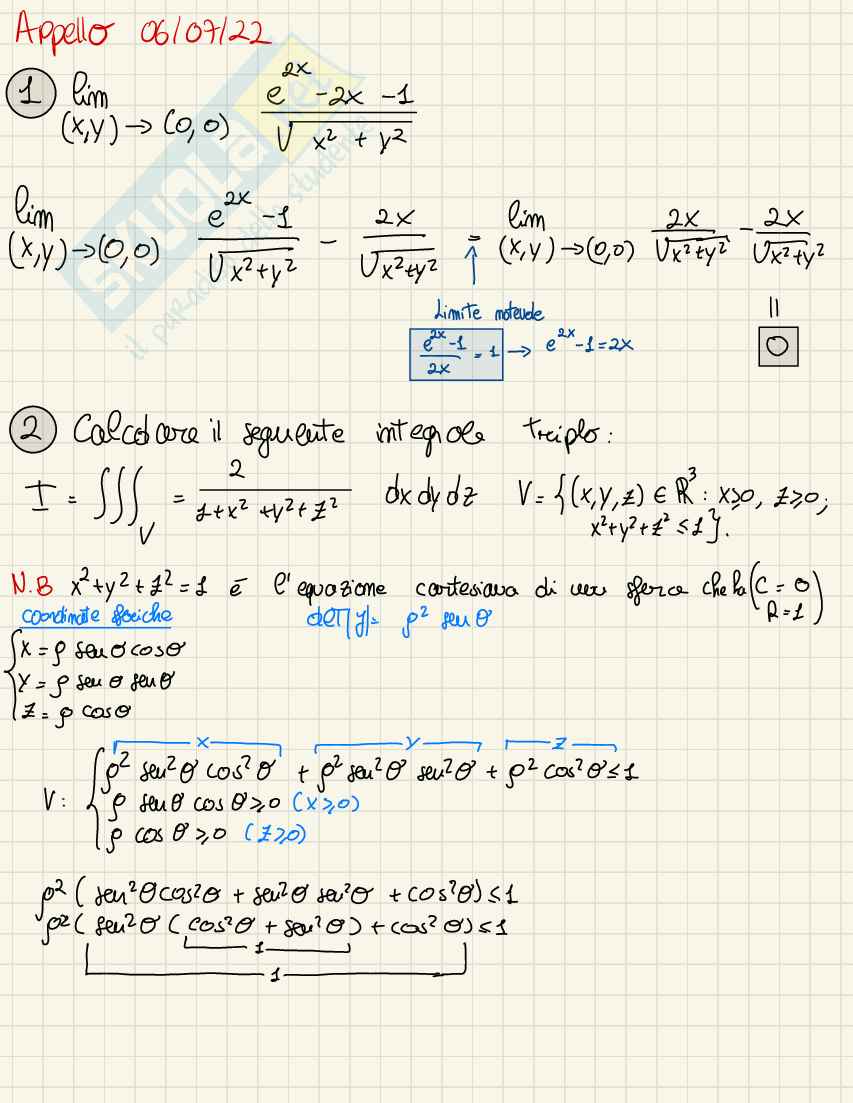 Appello 06/07/22
1 lim (x,y)→(0,0) (e^{2x} - 2x - 1) / √(x² + y²)
lim (x,y)→(0,0) (e^{2x} - 1) / √(x²+y²) - 2x / √(x²+y²) = lim (x,y)→(0,0) 2x / √(x²+y²) - 2x / √(x²+y²)
= 0
Limite notevole
(e^{2x} - 1) / 2x = 1 → e^{2x} - 1 = 2x
2 Calcolare il seguente integrale triplo:
I = ∭_V = 2 / (1+x²+y²+z²) dx dy dz V = {(x,y,z) ∈ ℝ³ : x≥0, z≥0;
x²+y²+z² ≤ 1}.
N.B x²+y²+z²=1 è l'equazione cartesiana di una sfera che ha (C = 0
R = 1)
coordinate sferiche det|y|= ρ² sen θ
x = ρ sen θ cos θ
y = ρ sen θ sen θ
z = ρ cos θ
x y z
V: ρ² sen²θ cos²θ + ρ² sen²θ sen²θ + ρ² cos²θ ≤ 1
ρ sen θ cos θ ≥ 0 (x ≥ 0)
ρ cos θ ≥ 0 (z ≥ 0)
ρ² (sen²θ cos²θ + sen²θ sen²θ + cos²θ) ≤ 1
ρ² (sen²θ (cos²θ + sen²θ) + cos²θ) ≤ 1
1
1
SKUOLA.net
il paradiso dello studente